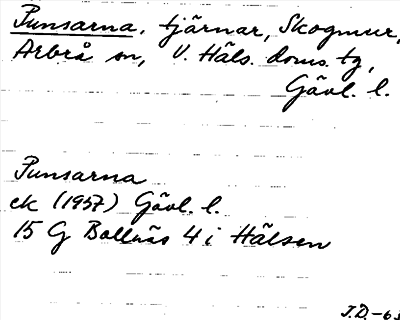 Punsarna, tjärnar, Skogmur,
Arbrå sn, V. Häls. doms. tg,
Gävl. l.
Punsarna
ek (1957) Gävl. l.
15 G Bollnäs 4 i Hälsen
J.D.-63